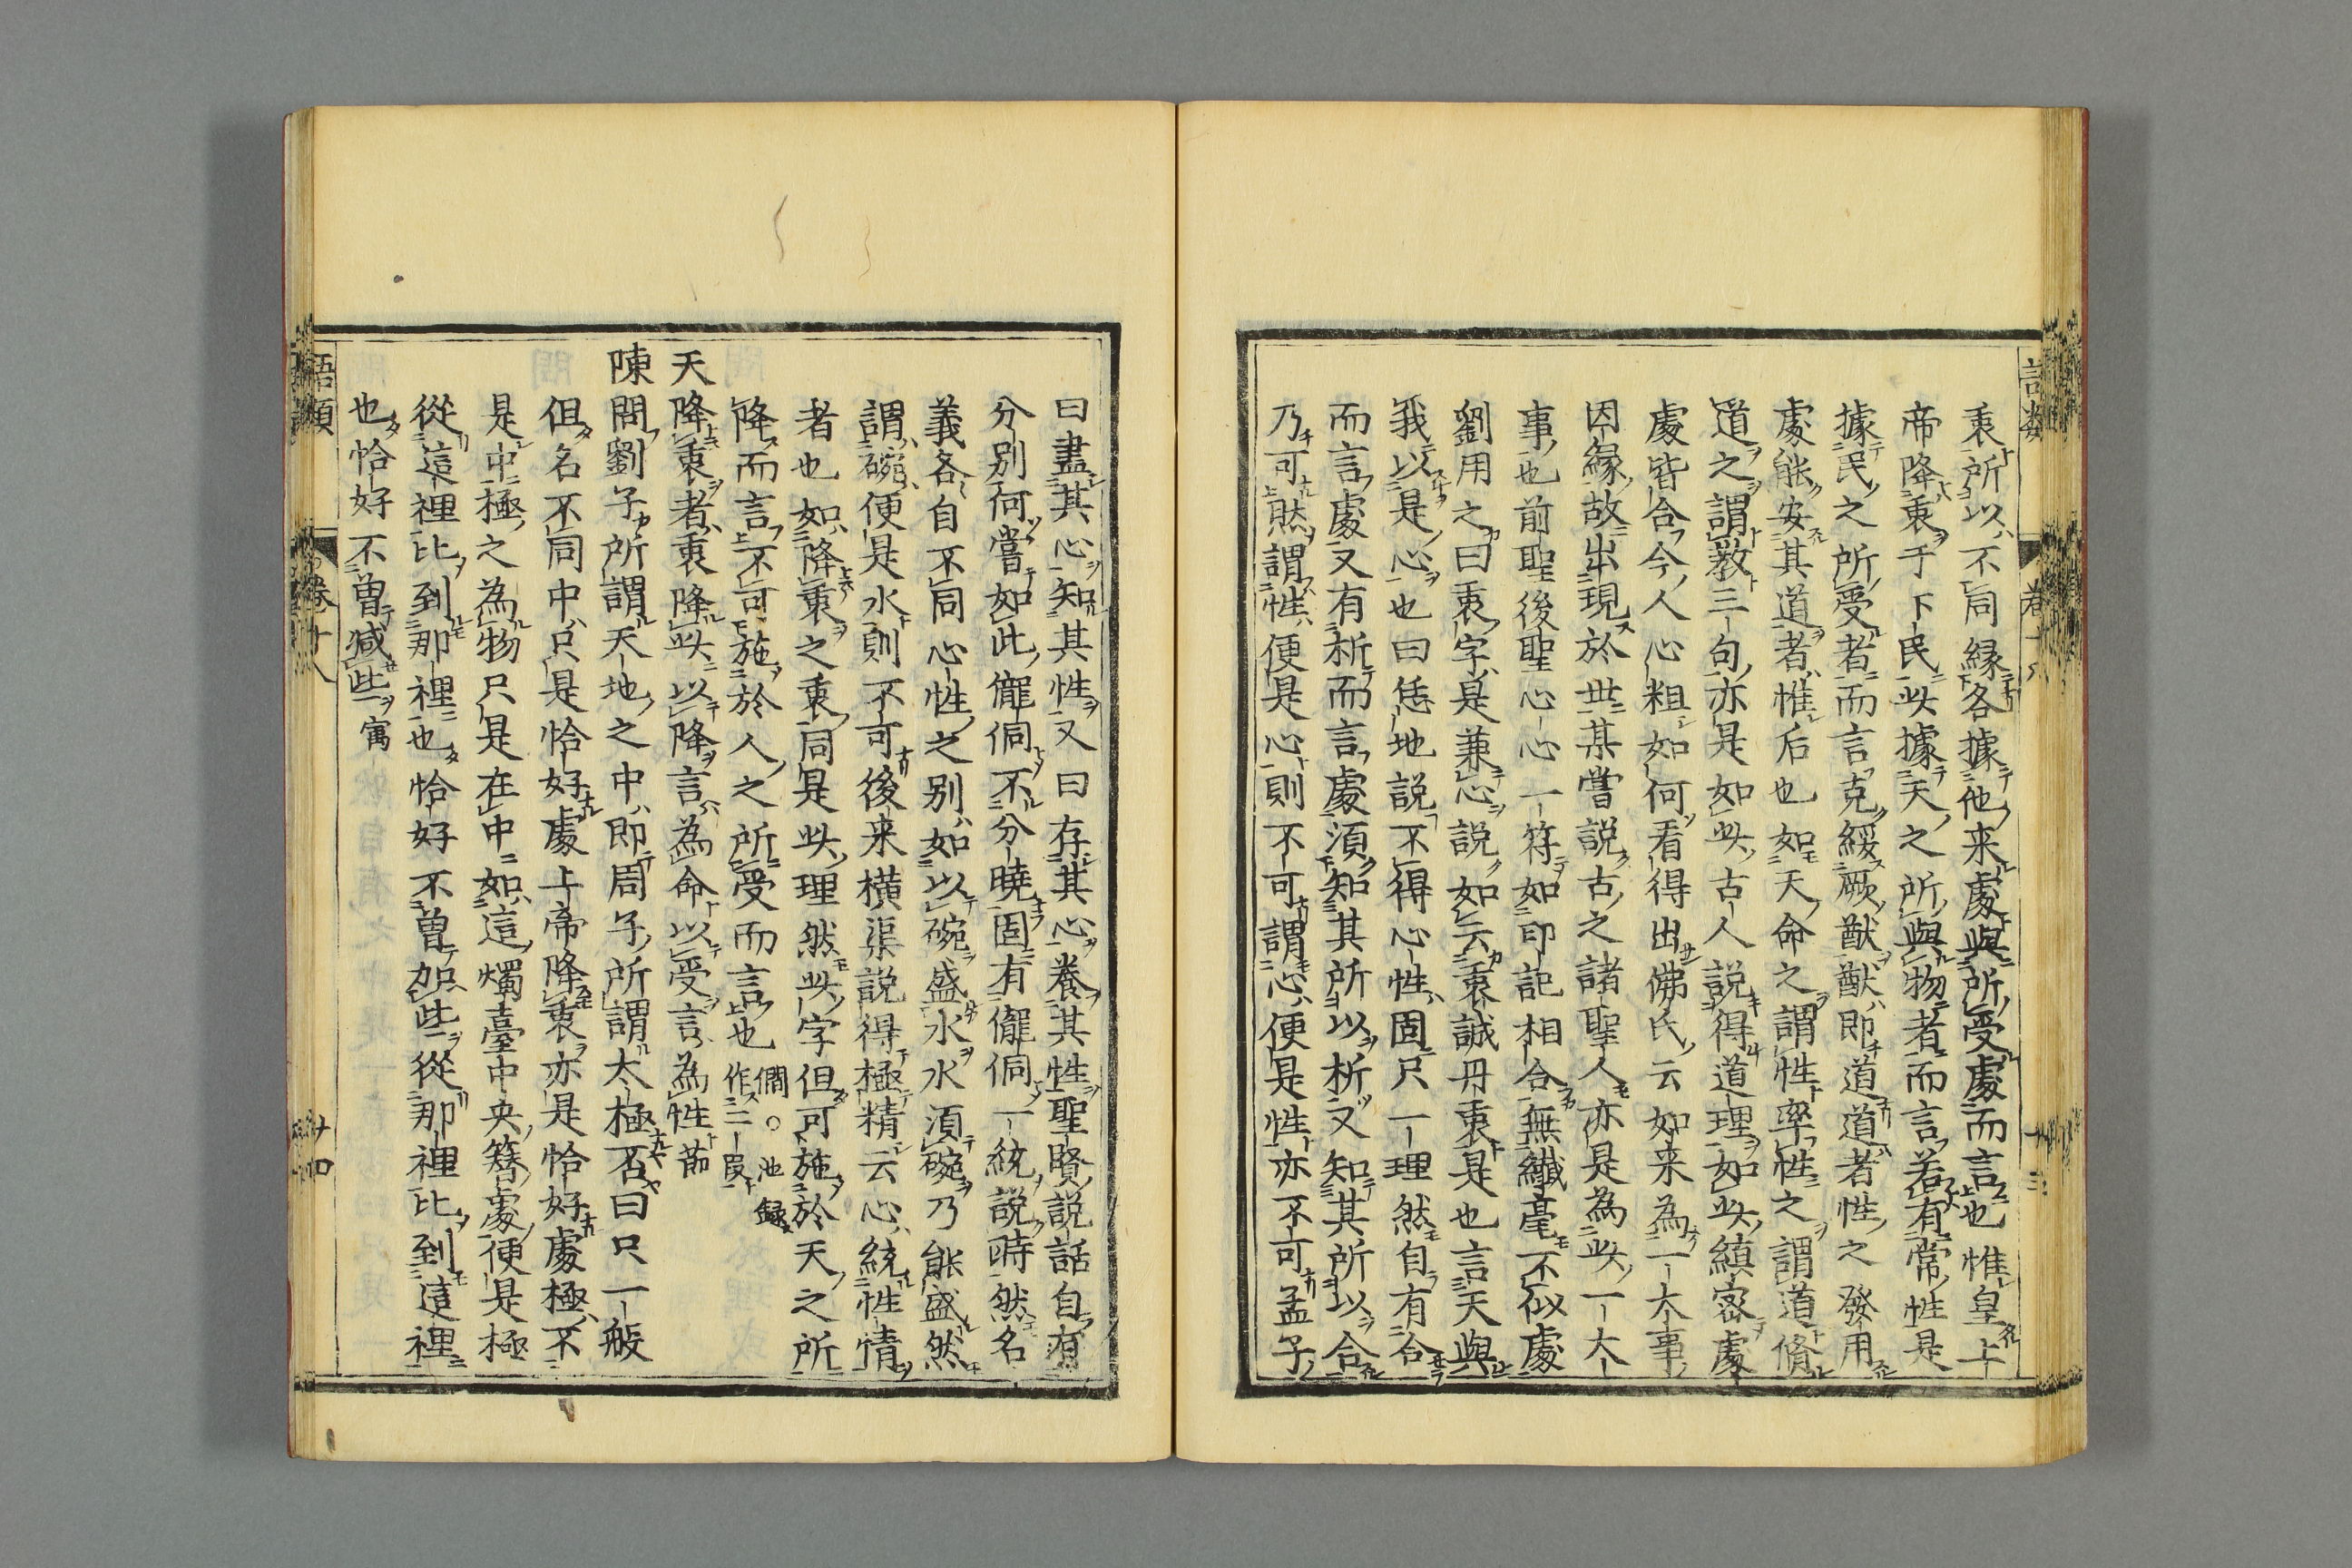 衷所以不同緣各據他来處與所受處而言也惟皇上
帝降衷于下民此據天之所與物者而言若有常性是
據民之所受者而言克綏厥猷猷即道道者性之發用
處能安其道者惟后也如天命之謂性率性之謂道脩
道之謂教三句亦是如此古人說得道理如此縝密處
處皆合今人心粗如何看得出佛氏云如来為一大事
因緣故出現於世某嘗說古之諸聖人亦是為此一大
事也前聖後聖心心一符如印記相合無纖毫不似處
劉用之曰衷字是兼心說如云衷誠丹衷是也言天與
我以是心也曰恁地說不得心性固只一理然自有合
而言處又有析而言處須知其所以析又知其所以合
乃可然謂性便是心則不可謂心便是性亦不可孟子
曰盡其心知其性又曰存其心養其性聖賢說話自有
分別何嘗如此儱侗不分曉固有儱侗一統說時然名
義各自不同心性之別如以碗盛水水須碗乃能盛然
謂碗便是水則不可後来橫渠說得極精云心統性情
者也如降衷之衷同是此理然此字但可施於天之所
降而言不可施於人之所受而言也 僩。池錄
作二段
天降衷者衷降此以降言為命以受言為性 節
陳問劉子所謂天地之中即周子所謂太極否曰只一般
但名不同中只是恰好處上帝降衷亦是恰好處極不
是中極之為物只是在中如這燭臺中央簪處便是極
從這裡比到那裡也恰好不曾加些從那裡比到這裡
也恰好不曾減些 寓
語類 卷十八 十四
語類 卷十八